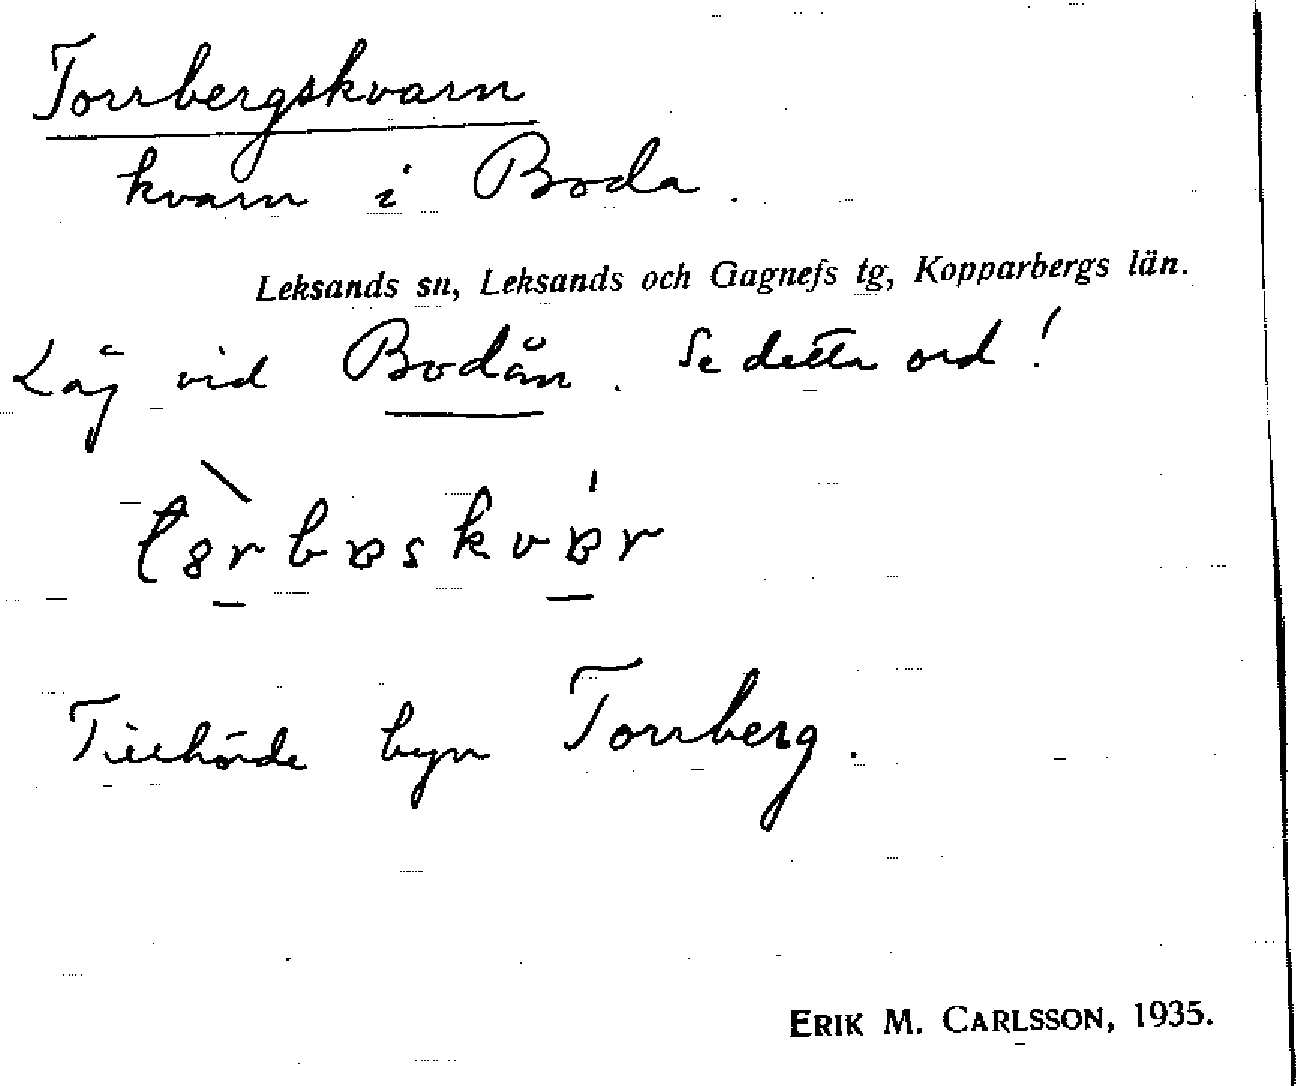 Torrbergskvarn
kvarn i Boda.
Leksands sn, Leksands och Gagnefs tg, Kopparbergs län.
Låg vid Bodån. Se detta ord!
Tillhörde byn Torrberg.
ERIK M. CARLSSON, 1935.